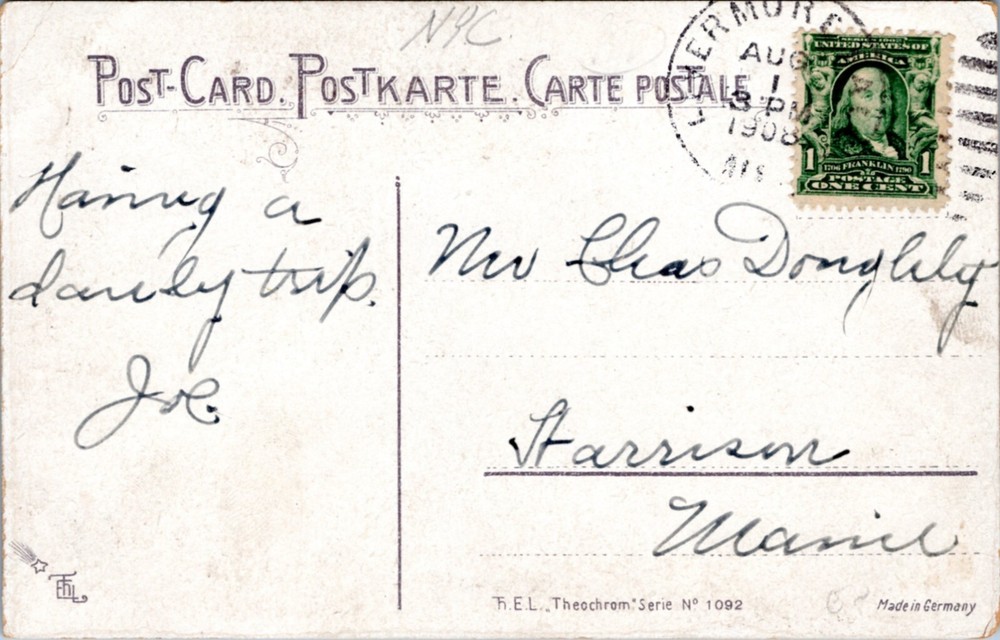 NYC
POST-CARD. POSTKARTE. CARTE POSTALE
LIVERMORE
AUG
1
3 PM
1908
SERIES 1902
UNITED STATES OF
AMERICA
1706 FRANKLIN 1790
1 1
POSTAGE
ONE CENT
Having a
dandy trip.
Joe.
Mr Chas Doughty
Harrison
Maine
ThEL
Th.E.L. „Theochrom" Serie Nº 1092
Made in Germany